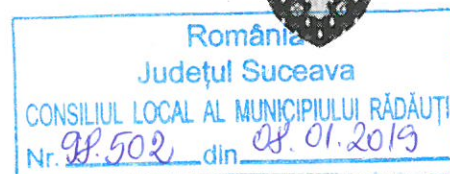 România
Județul Suceava
CONSILIUL LOCAL AL MUNICIPIULUI RĂDĂUȚI
Nr. 98.502 din 08.01.2019